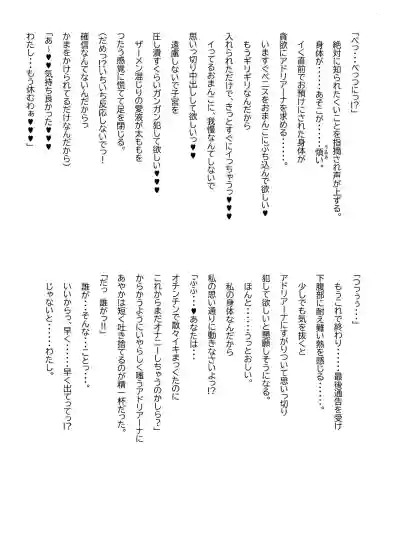 「べっ・・べつっにっ!?」
絶対に知られたくいことを指摘され声が上ずる。
身体が・・・・・あそこが・・・・・・煩い。
イく直前でお預けにされた身体が
貪欲にアドリアーナを求める・・・・・・。
いますぐペニスをおまんこにぶち込んで欲しい♥
もうギリギリなんだから
入れられただけで、きっとすぐにイっちゃうっ♥♥
イってるおまんこに、我慢なんてしないで
思いっ切り中出しして欲しいっ♥
遠慮しないで子宮を
圧し潰すくらいガンガン犯して欲しい♥♥
ザーメン混じりの愛液が太ももを
つたう感覚に慌てて足を閉じる。
(だめっ!?いちいち反応しないでっ!
確信なんてないんだからっ
かまをかけられてるだけなんだから)
「あ〜♥気持ち良かった♥♥♥
わたし・・・もう休むわぁ♥♥♥」
「つっうぅ・・・」
もうこれで終わり・・・・・最後通告を受け
下腹部に耐え難い熱を感じる・・・・・・。
少しでも気を抜くと
アドリアーナにすがりついて思いっ切り
犯して欲しいと懇願しそうになる。
ほんと・・・・・うっとおしい。
私の身体なんだから
私の思い通りに動きなさいよっ!?
「ふふ・・♥あなたは・・・
オチンチンで散々イキまくったのに
これからまだオナニーしちゃうのかしら?」
からかうようにいやらしく嗤うアドリアーナに
あやかは短く吐き捨てるのが精一杯だった。
「だっ 誰がっ!!」
誰が・・そんな・・ことっ・・。
いいからっ、早く・・・・・早く出てってっ!?
じゃないと・・・・・わたし。